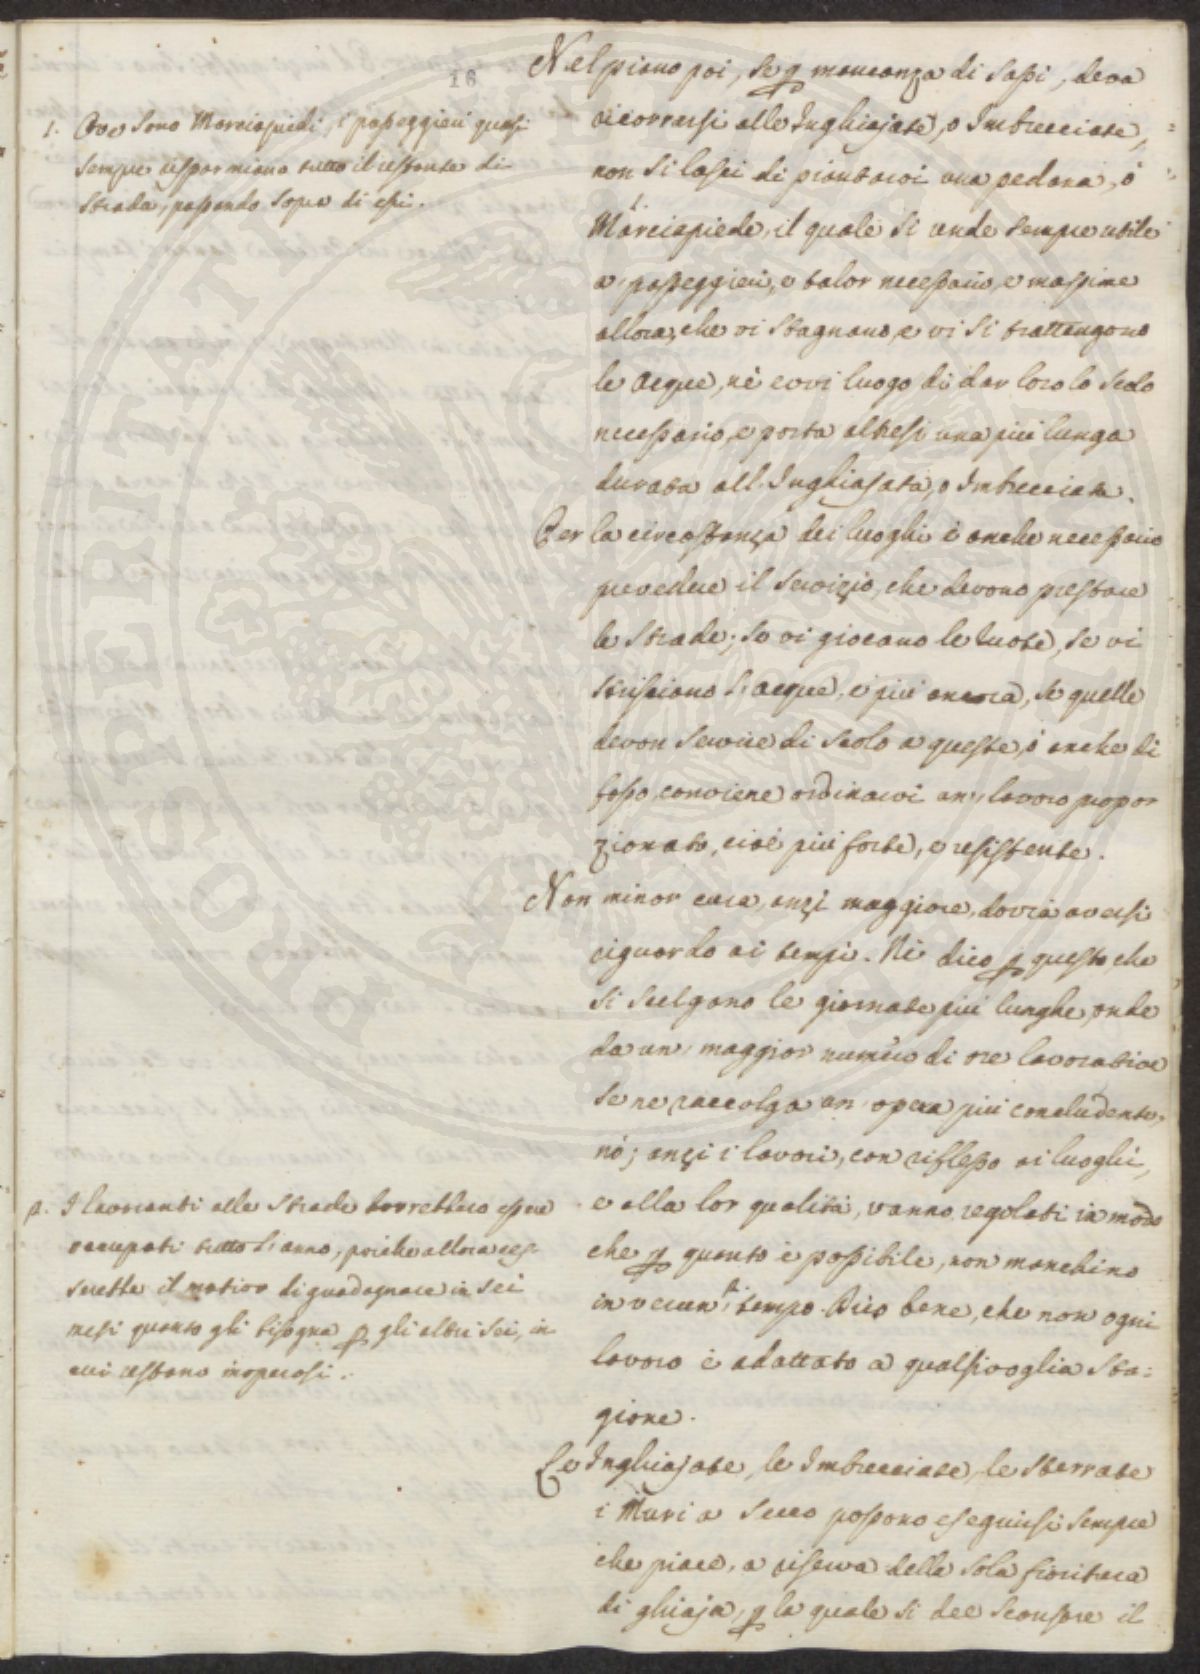 16
Nel piano poi, se p mancanza di sassi, deva
ricorrersi alle Inghiajate, o Imbrecciate,
non si lasci di piantarvi una pedana, ò
Marciapiede, il quale si rende sempre utile
a' passeggieri, e talor necessario, e massime
allora, che vi stagnano, e vi si trattengono
le acque, nè evvi luogo di dar loro lo scolo
necessario, e porta altresì una più lunga
durata all'Inghiajata, o Imbrecciata.
Per la circostanza dei luoghi è anche necessario
prevedere il servizio, che devono prestare
le strade; se vi giocano le ruote, se vi
strisciano l'acque, e più ancora, se quelle
devon servire di scolo a queste, ò anche di
fosso, conviene ordinarvi un' lavoro propor
zionato, cioè più forte, e resistente.
Non minor cura, anzi maggiore, dovrà aversi
riguardo ai tempi. Nè dico p questo che
si scelgano le giornate più lunghe, onde
da un' maggior numero di ore lavorative
se ne raccolga un' opera più concludente,
nò; anzi i lavori, con riflesso ai luoghi,
e alla lor qualità, vanno regolati in modo
che p quanto è possibile, non manchino
in verun' tempo. Dico bene, che non ogni
lavoro è adattato a qualsivoglia sta=
gione.
Le Inghiajate, le Imbrecciate, le sterrate
i Muri a secco possono eseguirsi sempre
che piace, a riserva della sola fioritura
di ghiaja, p la quale si dee scansare il
1. Ove sono Marciapiedi, i passeggieri quasi
sempre risparmiano tutto il restante di
strada, passando sopra di essi.
2. I lavoranti alle strade dovrebbero essere
occupati tutto l'anno, poiche allora ces=
serebbe il motivo di guadagnare in sei
mesi quanto gli bisogna p gli altri sei, in
cui restano inoperosi.
PROSPERITATI